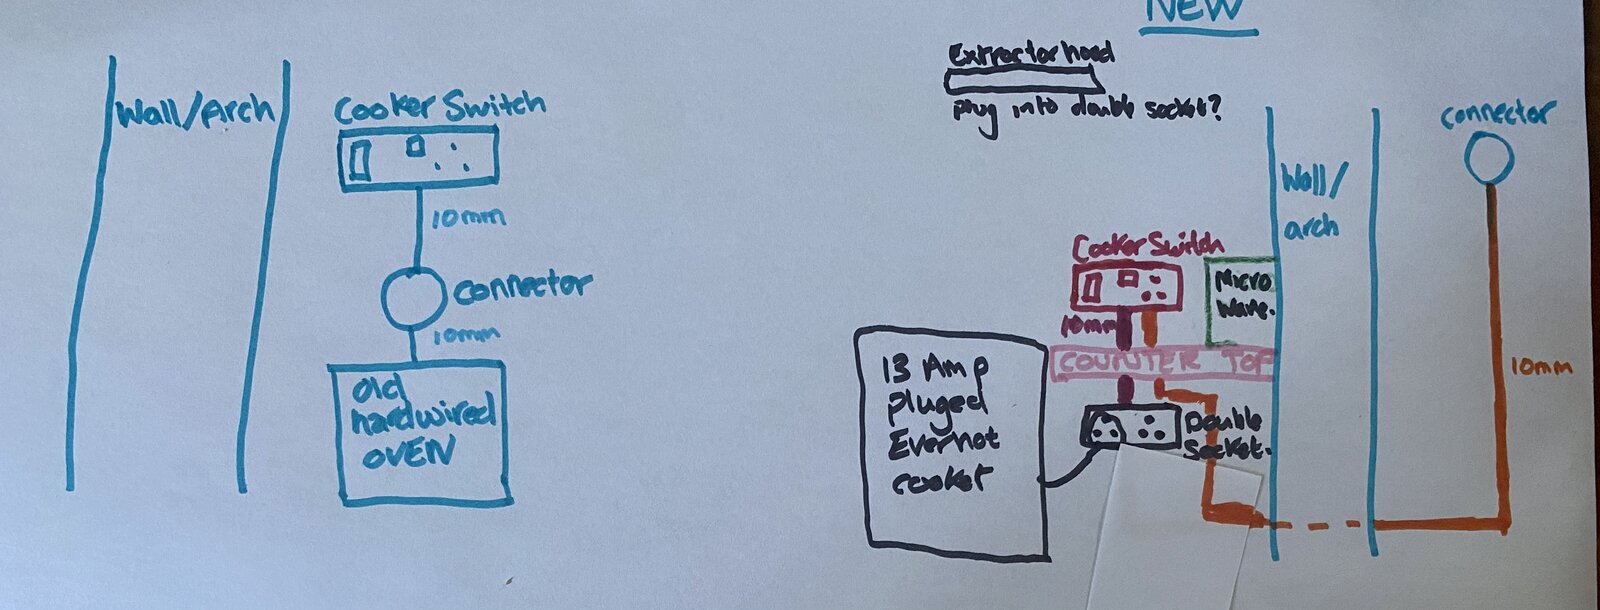 NEW
Wall/Arch
Cooker Switch
10mm
connector
10mm
Old
hardwired
OVEN
Extractor hood
plug into double socket?
connector
Wall/
arch
Cooker Switch
Micro
Wave.
10mm
COUNTER TOP
10mm
13 Amp
pluged
Everhot
cooker
Double
Socket.